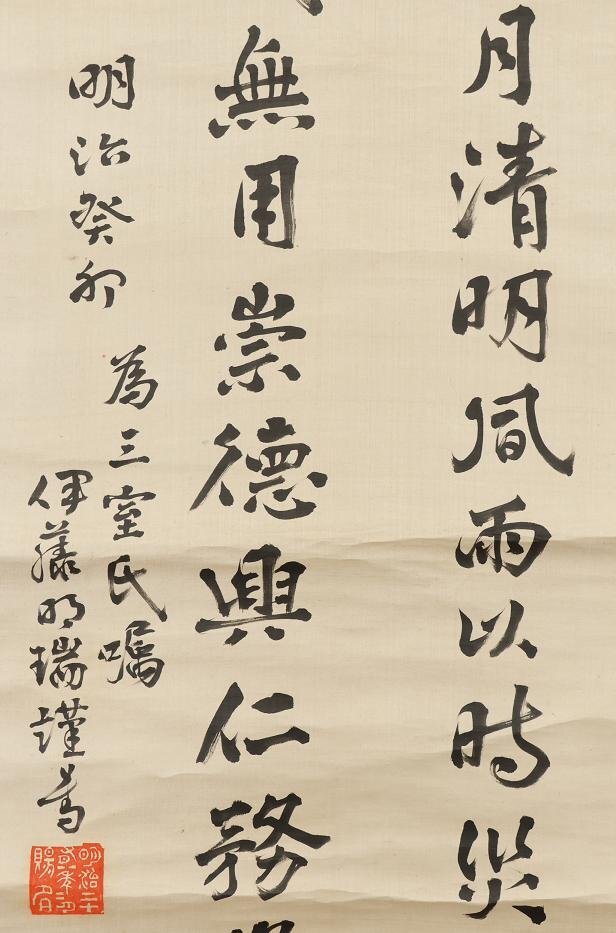 月清明風雨以時災
無用崇德興仁務
明治癸卯
為三室氏嘱
伊藤明瑞謹書
明治二十
賜名